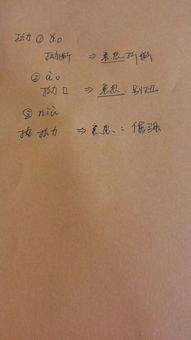 拗 ① ǎo
拗断 ⇒ 意思: 折断
② ào
拗口 ⇒ 意思: 别扭
③ niù
执拗 ⇒ 意思: 倔强